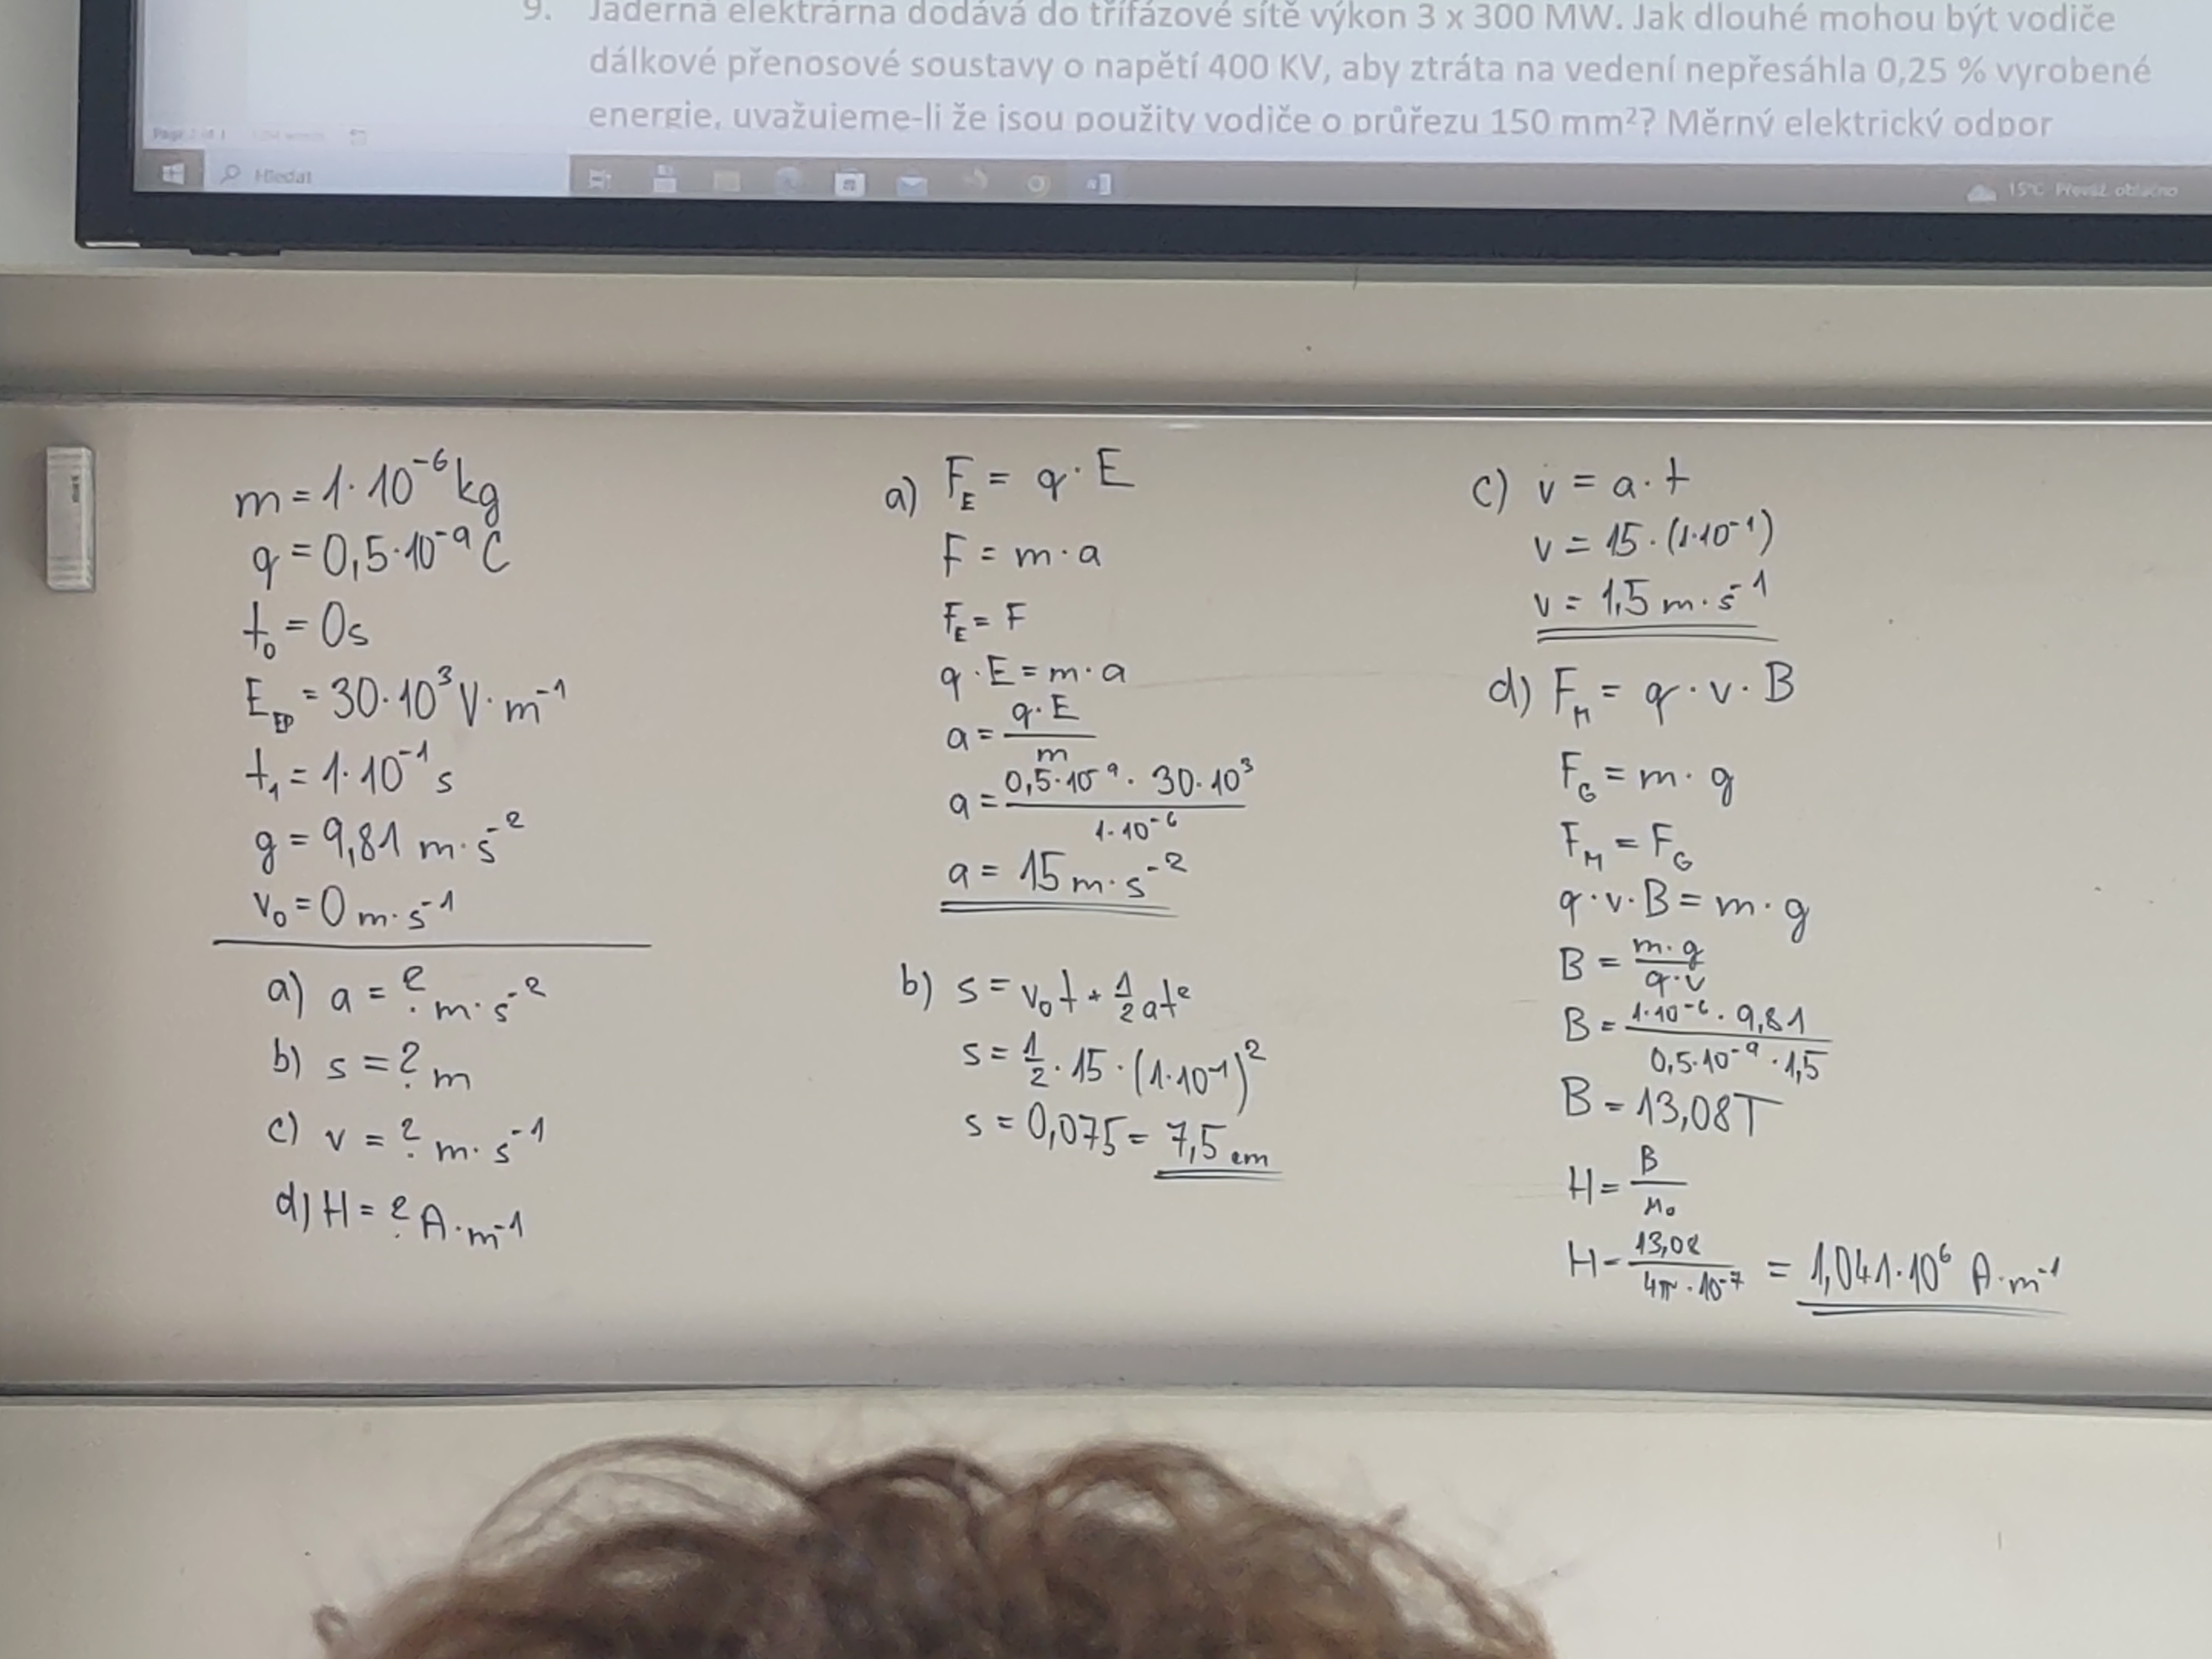 9. Jaderná elektrárna dodává do třífázové sítě výkon 3 x 300 MW. Jak dlouhé mohou být vodiče
dálkové přenosové soustavy o napětí 400 KV, aby ztráta na vedení nepřesáhla 0,25 % vyrobené
energie, uvažujeme-li že jsou použity vodiče o průřezu 150 mm²? Měrný elektrický odpor
Hledat
15°C Převáž. oblačno
m = 1·10⁻⁶ kg
q = 0,5·10⁻⁹ C
t₀ = 0s
E_EP = 30·10³ V·m⁻¹
t₁ = 1·10⁻¹ s
g = 9,81 m·s⁻²
v₀ = 0 m·s⁻¹
a) a = ? m·s⁻²
b) s = ? m
c) v = ? m·s⁻¹
d) H = ? A·m⁻¹
a) F_E = q·E
F = m·a
F_E = F
q·E = m·a
a = q·E / m
a = 0,5·10⁻⁹·30·10³ / 1·10⁻⁶
a = 15 m·s⁻²
b) s = v₀t + 1/2 at²
s = 1/2·15·(1·10⁻¹)²
s = 0,075 = 7,5 cm
c) v = a·t
v = 15·(1·10⁻¹)
v = 1,5 m·s⁻¹
d) F_M = q·v·B
F_G = m·g
F_M = F_G
q·v·B = m·g
B = m·g / q·v
B = 1·10⁻⁶·9,81 / 0,5·10⁻⁹·1,5
B = 13,08T
H = B / μ₀
H = 13,08 / 4π·10⁻⁷ = 1,041·10⁶ A·m⁻¹